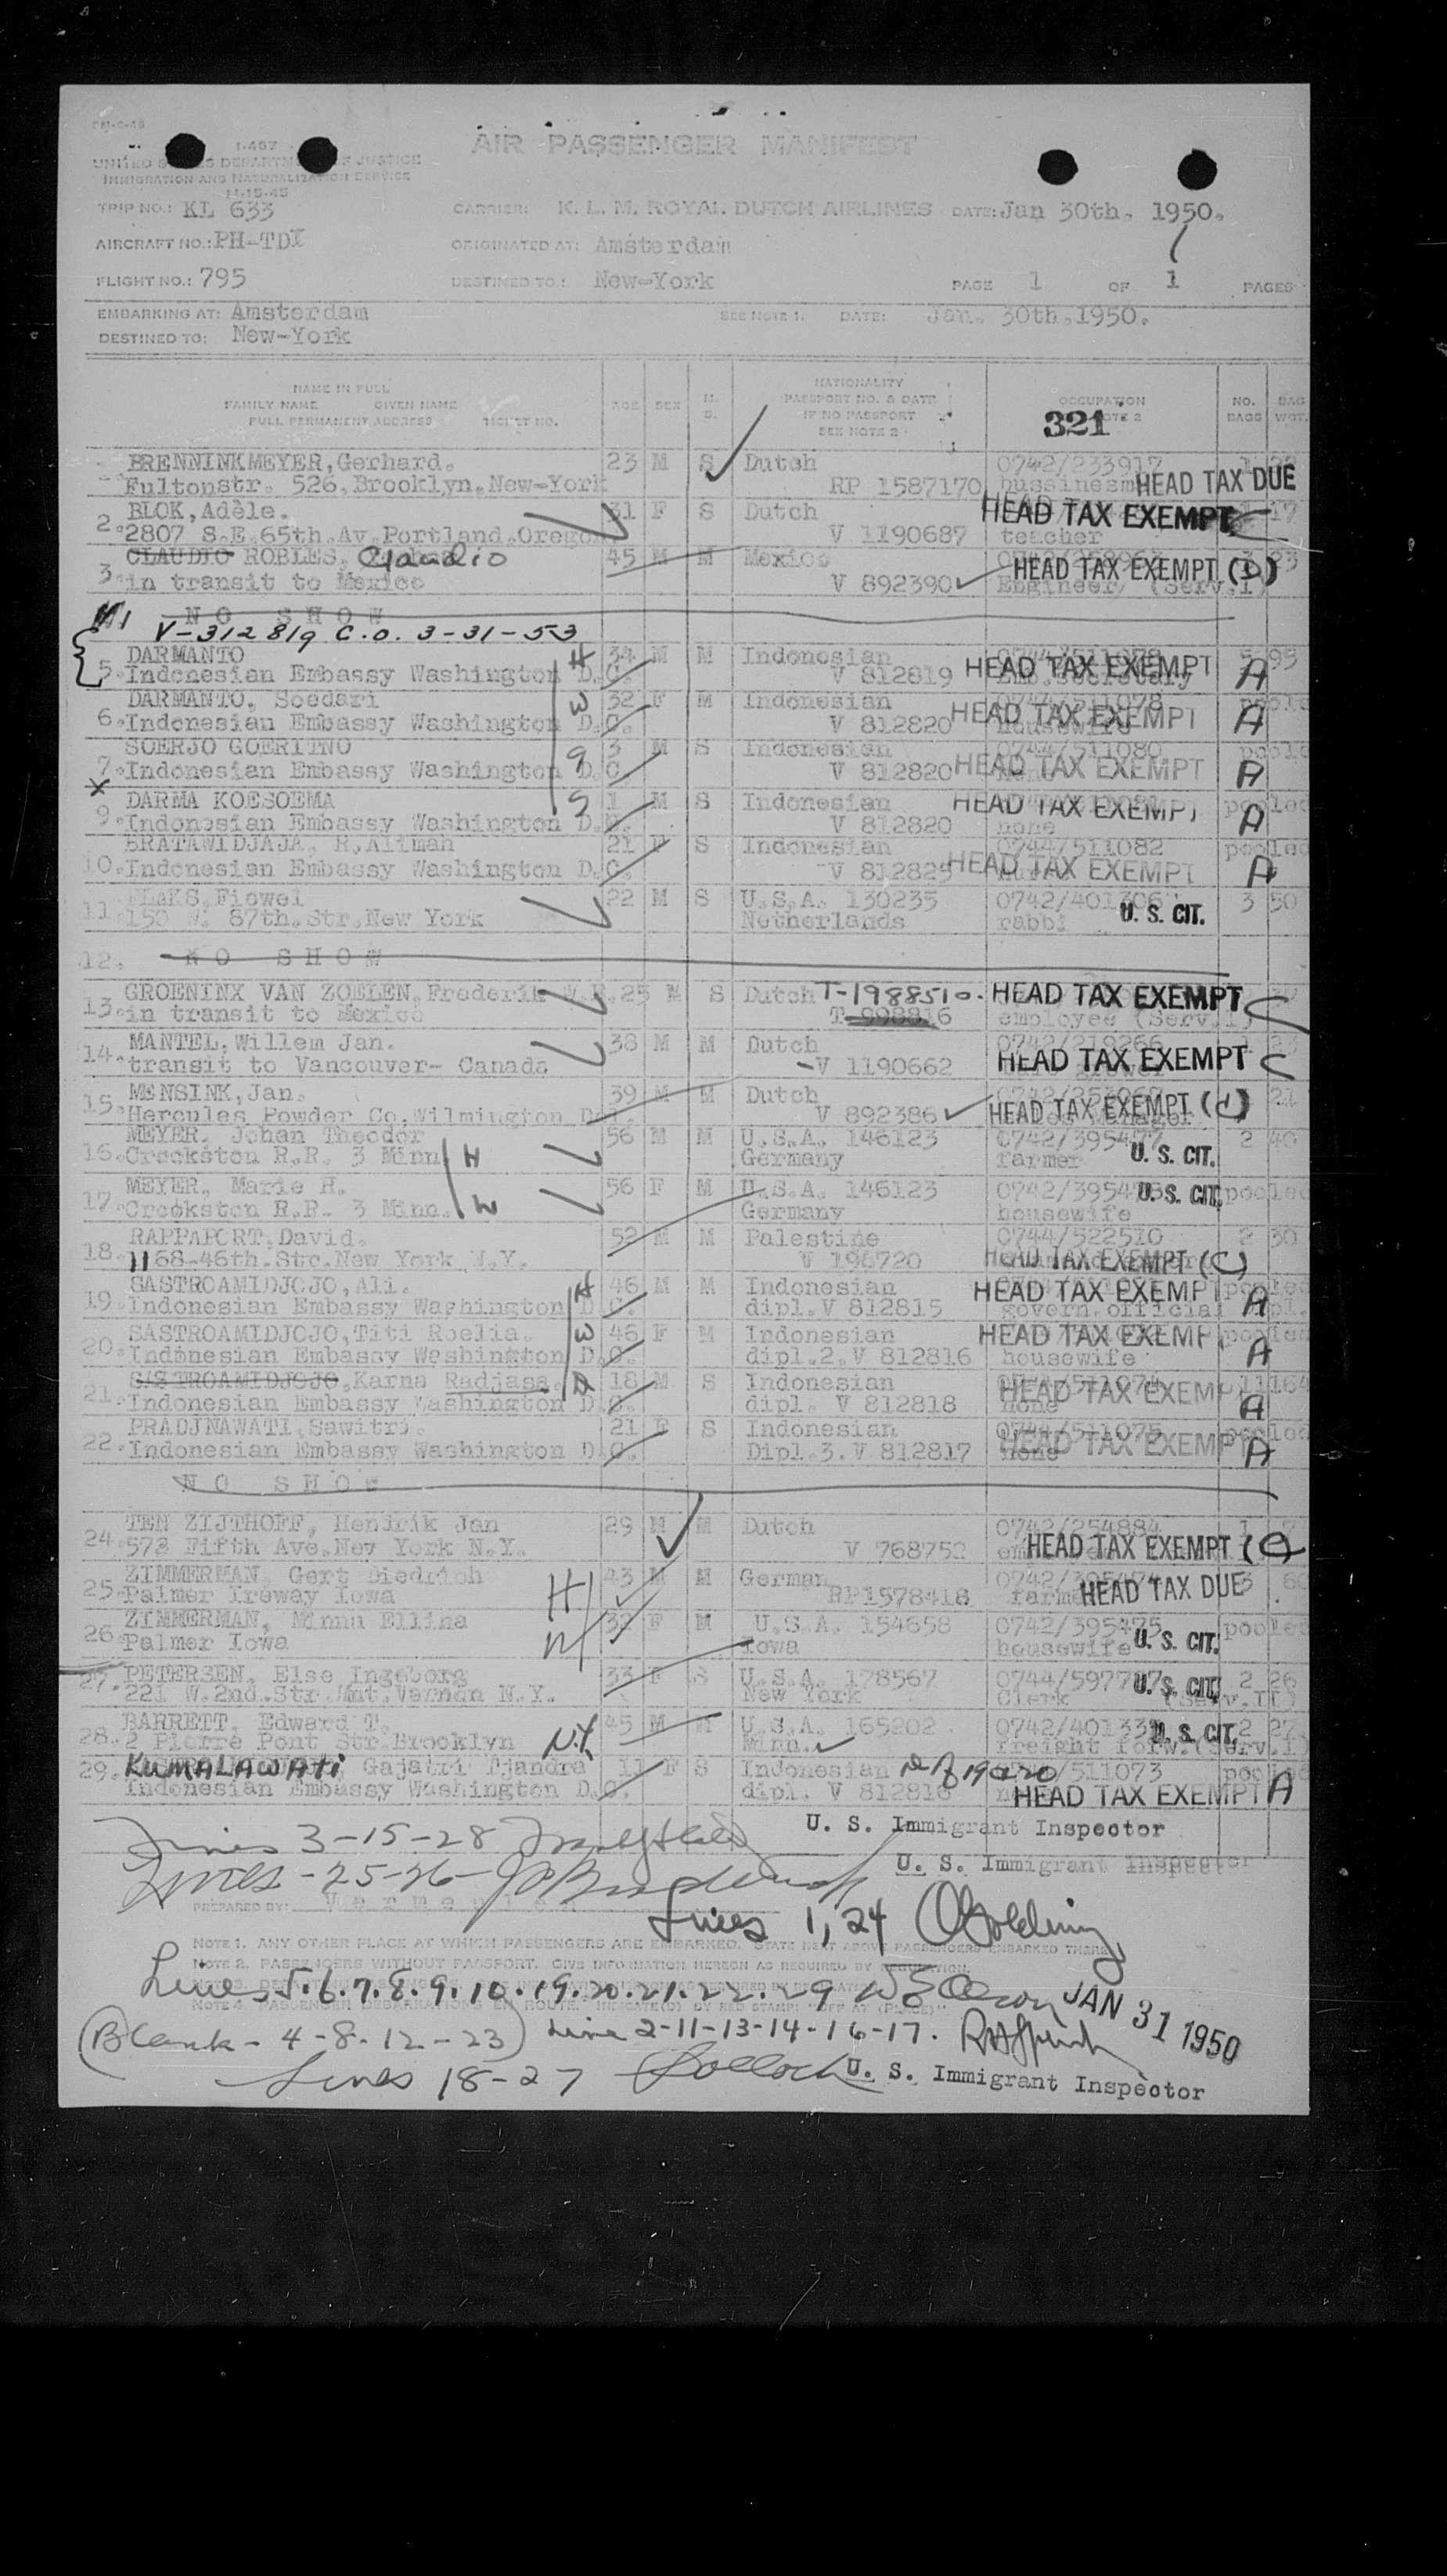 AIR PASSENGER MANIFEST
I-407
UNITED STATES DEPARTMENT OF JUSTICE
IMMIGRATION AND NATURALIZATION SERVICE
TRIP NO.: KL 633 CARRIER: K. L. M. ROYAL DUTCH AIRLINES DATE: Jan 30th. 1950.
AIRCRAFT NO.: PH-TDI ORIGINATED AT: Amsterdam
FLIGHT NO.: 795 DESTINED TO: New-York PAGE 1 OF 1 PAGES
EMBARKING AT: Amsterdam SEE NOTE 1. DATE: Jan. 30th.1950.
DESTINED TO: New-York
NAME IN FULL NATIONALITY
FAMILY NAME GIVEN NAME AGE SEX M. PASSPORT NO. & DATE OCCUPATION NO. BAG
FULL PERMANENT ADDRESS TICKET NO. S. IF NO PASSPORT 321 NOTE 2 BAGS WGT.
SEE NOTE 2
BRENNINKMEYER, Gerhard. 23 M S Dutch 0742/233917 1
Fultonstr. 526, Brooklyn, New-York RP 1587170 HEAD TAX DUE
BLOK, Adèle. 31 F S Dutch HEAD TAX EXEMPT C 17
2. 2807 S.E. 65th. Av. Portland Oregon V 1190687 teacher
CLAUDIO ROBLES, Claudio 45 M M Mexico 23
3. in transit to Mexico V 892390 HEAD TAX EXEMPT (D) Engineer (Serv.I)
NO SHOW
V-312819 C.O. 3-31-53
DARMANTO 34 M M Indonesian 95
5. Indonesian Embassy Washington D.C. H V 812819 HEAD TAX EXEMPT A
DARMANTO, Soedari 32 F M Indonesian 0744/511078
6. Indonesian Embassy Washington D.C. W V 812820 HEAD TAX EXEMPT housewife A
SOERJO GOERITNO 3 M S Indonesian 0744/511080 pooled
7. Indonesian Embassy Washington D.C. V 812820 HEAD TAX EXEMPT A
DARMA KOESOEMA 1 M S Indonesian HEAD TAX EXEMPT pooled
9. Indonesian Embassy Washington D.C. S V 812820 none A
BRATAWIDJAJA, R. Alimah 21 F S Indonesian 0744/511082 pooled
10. Indonesian Embassy Washington D.C. V 812825 HEAD TAX EXEMPT A
22 M S U.S.A. 130235 0742/401306 3 50
11. 150 W. 87th. Str. New York Netherlands rabbi U. S. CIT.
12. NO SHOW
GROENINX VAN ZOELEN, Frederik 25 M S Dutch T-1988510. HEAD TAX EXEMPT C
13. in transit to Mexico employee (Serv.I)
MANTEL, Willem Jan. 38 M M Dutch 0742/219266
14. transit to Vancouver- Canada V 1190662 HEAD TAX EXEMPT C
MENSINK, Jan. 39 M M Dutch 21
15. Hercules Powder Co. Wilmington Del. V 892386 HEAD TAX EXEMPT (C)
MEYER, Johan Theodor 56 M M U.S.A. 146123 0742/395477 2 40
16. Crookston R.R. 3 Minn H Germany farmer U. S. CIT.
MEYER, Marie H. 56 F M U.S.A. 146123 0742/395478 U. S. CIT. pooled
17. Crookston R.R. 3 Minn. W Germany housewife
RAPPAPORT, David. 52 M M Palestine 0744/522510 2 30
18. 1168-46th. Str. New York N.Y. V 196720 HEAD TAX EXEMPT (C)
SASTROAMIDJOJO, Ali. 46 M M Indonesian HEAD TAX EXEMPT pooled
19. Indonesian Embassy Washington D.C. H dipl. V 812815 govern. official A
SASTROAMIDJOJO, Titi Roelia. 46 F M Indonesian HEAD TAX EXEMPT pooled
20. Indonesian Embassy Washington D.C. W dipl.2. V 812816 housewife A
SASTROAMIDJOJO, Karna Radjasa. 18 M S Indonesian 0744/511074 11 164
21. Indonesian Embassy Washington D.C. dipl. V 812818 none HEAD TAX EXEMPT A
PRADJNAWATI, Sawitri. 21 F S Indonesian 0744/511075 pooled
22. Indonesian Embassy Washington D.C. Dipl.3. V 812817 none HEAD TAX EXEMPT A
NO SHOW
TEN ZIJTHOFF, Hendrik Jan 29 M M Dutch 0742/254884 1
24. 572 Fifth Ave. New York N.Y. V 768752 HEAD TAX EXEMPT (C)
ZIMMERMAN, Gert Diedrich 43 M M German 3 60
25. Palmer Ireway Iowa H RP1578418 farmer HEAD TAX DUE
ZIMMERMAN, Minnu Ellina 32 F M U.S.A. 154658 0742/395475 pooled
26. Palmer Iowa W Iowa housewife U. S. CIT.
PETERSEN, Else Ingeborg 33 F S U.S.A. 178567 0744/597787 U. S. CIT. 2 26
27. 221 W. 2nd. Str. Mnt. Vernon N.Y. New York Clerk (Serv.II)
BARRETT, Edward T. 45 M M U.S.A. 165202 0742/401339 U. S. CIT. 2 27
28. 2 Pierre Pont Str. Brooklyn N.Y. Minn. freight forw. (Serv.I)
29. KUMALAWATI Gajatri Tjandra 11 F S Indonesian 0744/511073 pooled
Indonesian Embassy Washington D.C. dipl. V 812816 HEAD TAX EXEMPT A
Lines 3-15-28 U. S. Immigrant Inspector
Lines - 25-26- U. S. Immigrant Inspector
PREPARED BY:
Lines 1, 24
NOTE 1. ANY OTHER PLACE AT WHICH PASSENGERS ARE EMBARKED. STATE NEXT ABOVE PASSENGERS EMBARKED THERE.
NOTE 2. PASSENGERS WITHOUT PASSPORT. GIVE INFORMATION HEREON AS REQUIRED BY REGULATION.
Lines 5.6.7.8.9.10.19.20.21.22.29 JAN 31 1950
(Blank - 4-8-12-23) Line 2-11-13-14-16-17.
Lines 18-27 U. S. Immigrant Inspector